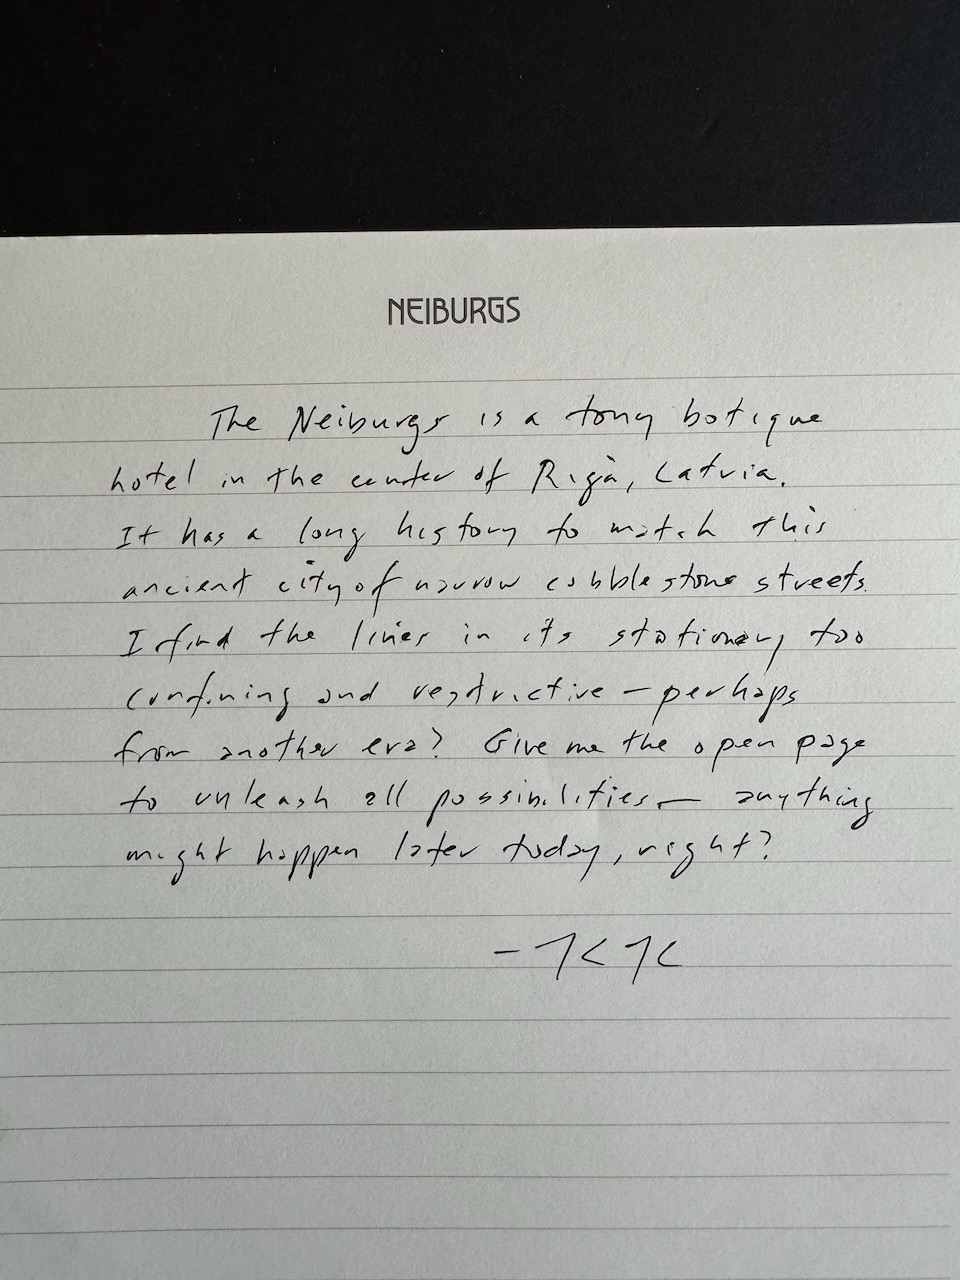 NEIBURGS
The Neiburgs is a tony botique
hotel in the center of Rigà, Latvia.
It has a long history to match this
ancient city of narrow cobblestone streets.
I find the lines in its stationery too
confining and restrictive – perhaps
from another era? Give me the open page
to unleash all possibilities – anything
might happen later today, right?
– KK